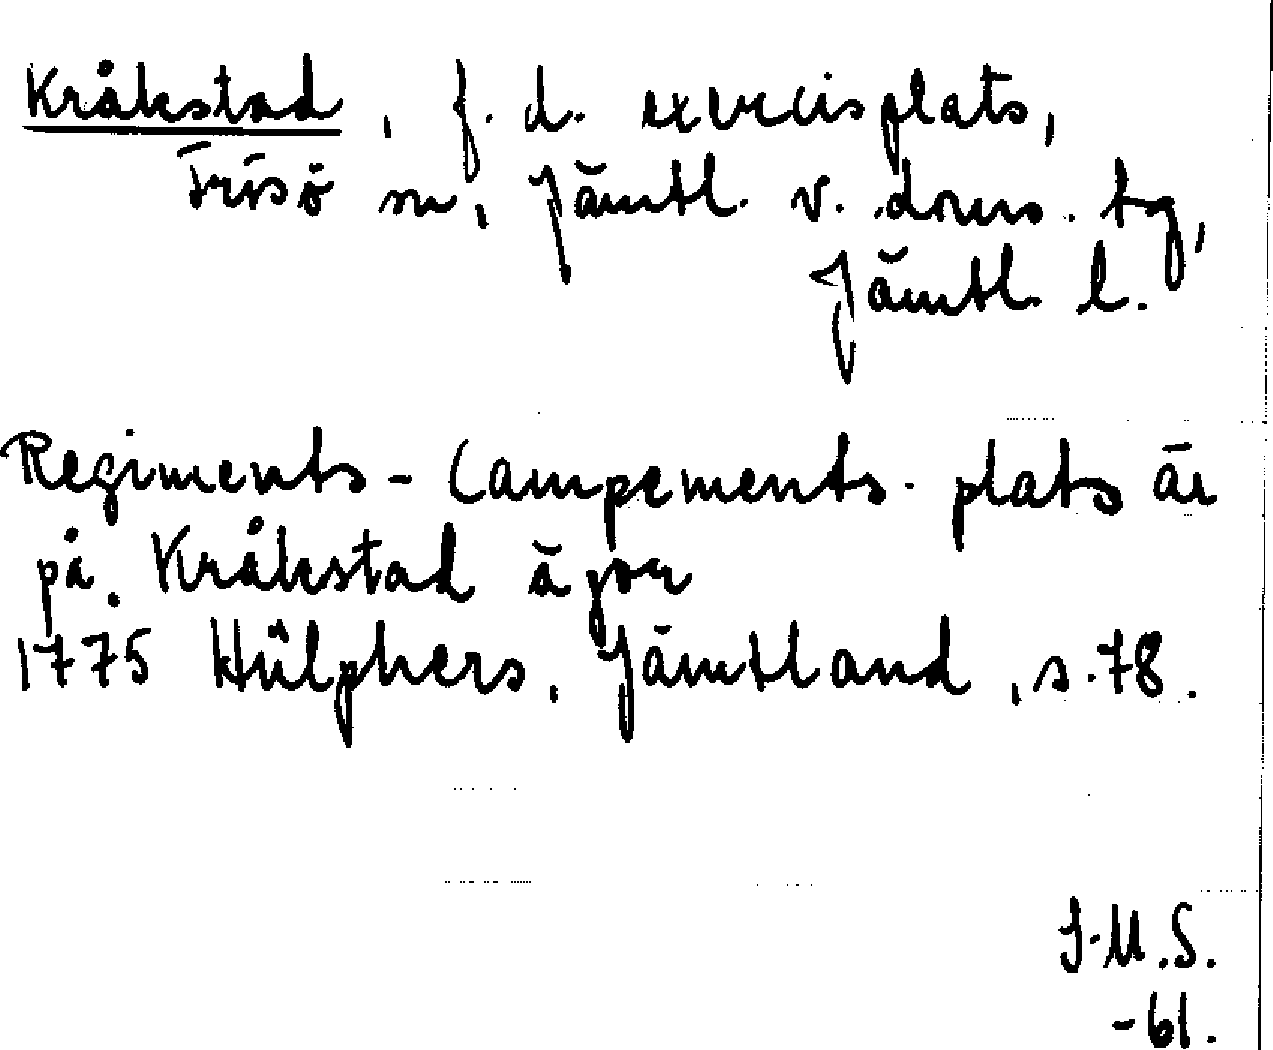 Kråkstad, f. d. exercisplats,
Frösö sn, Jämtl. v. doms. tg,
Jämtl. l.
Regiments-Campements-plats är
på Kråkstad ägor
1775 Hülphers, Jämtland, s. 78.
J.M.S.
-61.